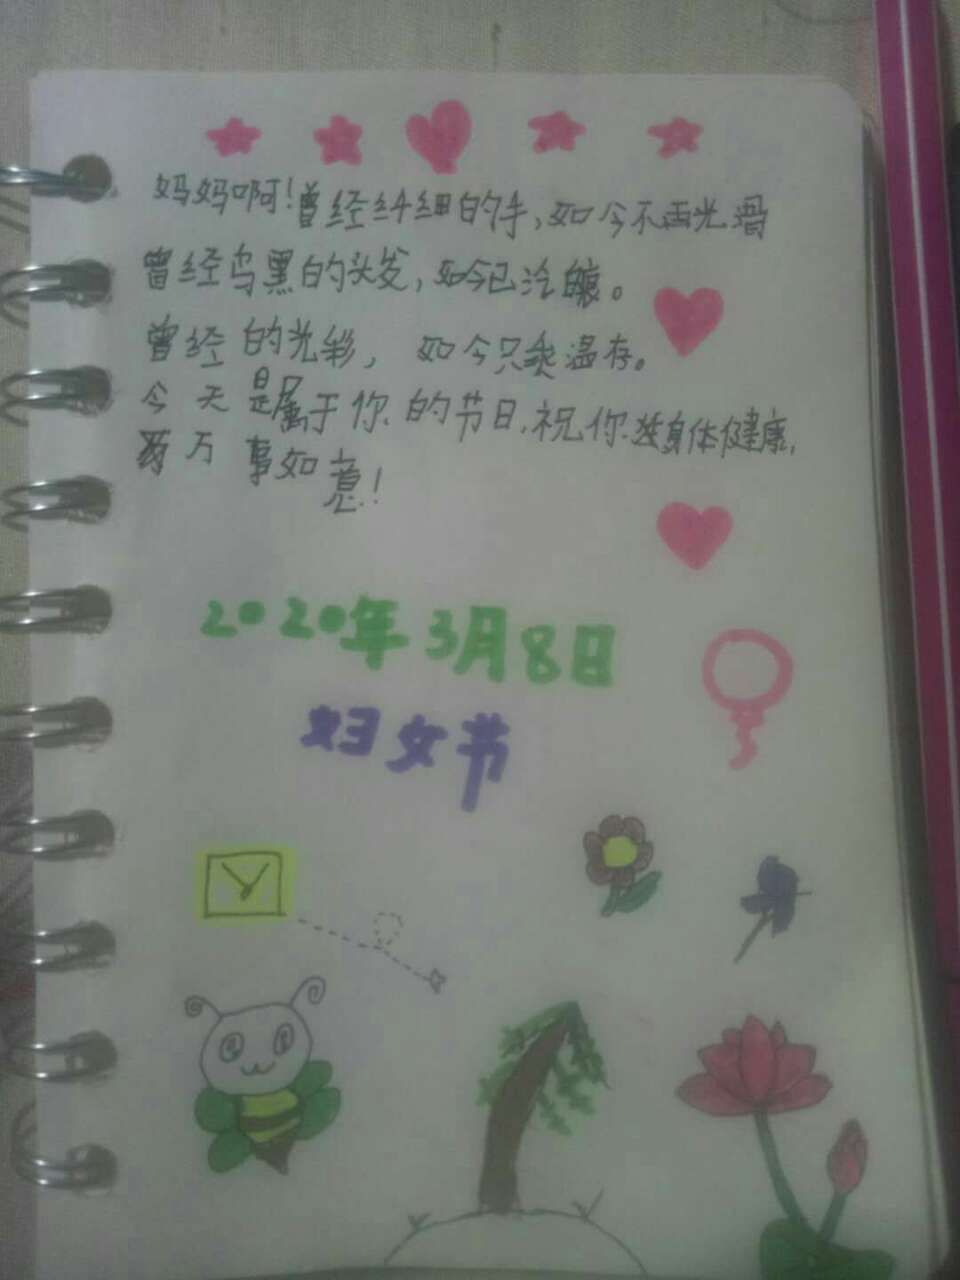 妈妈啊!曾经纤细的手,如今不再光滑
曾经乌黑的头发,如今已沧。
曾经的光彩,如今只剩温存。
今天是属于你的节日,祝你身体健康,
万事如意!
2020年3月8日
妇女节